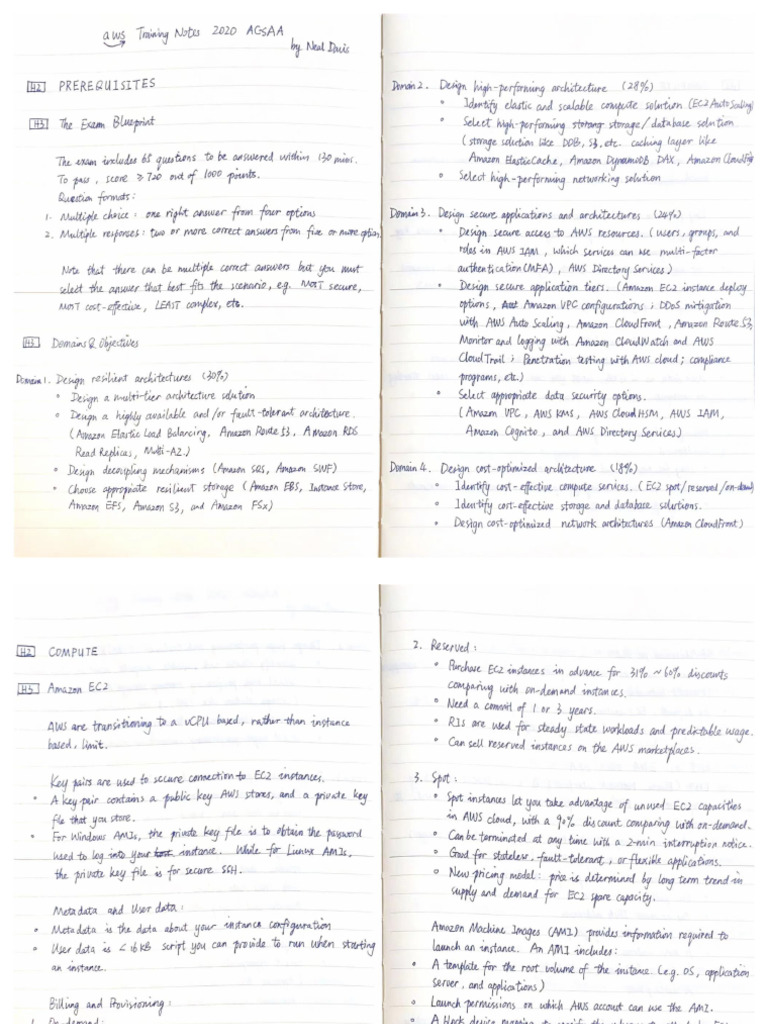 aws Training Notes 2020 ACSAA
by Neal Davis
H2 PREREQUISITES
H3 The Exam Blueprint
The exam includes 65 questions to be answered within 130 mins.
To pass, score ≥ 720 out of 1000 points.
Question formats:
1. Multiple choice: one right answer from four options
2. Multiple responses: two or more correct answers from five or more option
Note that there can be multiple correct answers but you must
select the answer that best fits the scenario, e.g. MOST secure,
MOST cost-effective, LEAST complex, etc.
H3 Domains & Objectives
Domain 1. Design resilient architectures (30%)
• Design a multi-tier architecture solution
• Design a highly available and/or fault-tolerant architecture.
(Amazon Elastic Load Balancing, Amazon Route 53, Amazon RDS
Read Replicas, Multi-AZ.)
• Design decoupling mechanisms (Amazon SQS, Amazon SWF)
• Choose appropriate resilient storage (Amazon EBS, Instance Store,
Amazon EFS, Amazon S3, and Amazon FSx)
Domain 2. Design high-performing architecture (28%)
• Identify elastic and scalable compute solution (EC2 Auto Scaling)
• Select high-performing storage/database solution
(storage solution like DDB, S3, etc. caching layer like
Amazon ElasticCache, Amazon DynamoDB DAX, Amazon
• Select high-performing networking solution
Domain 3. Design secure applications and architectures (24%)
• Design secure access to AWS resources. (users, groups, and
roles in AWS IAM, which services can use multi-factor
authentication (MFA), AWS Directory Services)
• Design secure application tiers. (Amazon EC2 instance deploy
options, Amazon VPC configurations; DDoS mitigation
with AWS Auto Scaling, Amazon CloudFront, Amazon Route 53,
Monitor and logging with Amazon CloudWatch and AWS
CloudTrail; Penetration testing with AWS cloud; compliance
programs, etc.)
• Select appropriate data security options.
(Amazon VPC, AWS KMS, AWS CloudHSM, AWS IAM,
Amazon Cognito, and AWS Directory Services)
Domain 4. Design cost-optimized architecture (18%)
• Identify cost-effective compute services. (EC2 spot/reserved/on-demand
• Identify cost-effective storage and database solutions.
• Design cost-optimized network architectures (Amazon CloudFront)
H2 COMPUTE
H3 Amazon EC2
AWS are transitioning to a vCPU based, rather than instance
based, limit.
Key pairs are used to secure connection to EC2 instances.
• A key pair contains a public key AWS stores, and a private key
file that you store.
• For Windows AMIs, the private key file is to obtain the password
used to log into your instance. While for Linux AMIs,
the private key file is for secure SSH.
Metadata and User data:
• Metadata is the data about your instance configuration
• User data is < 16 KB script you can provide to run when starting
an instance.
Billing and Provisioning:
1. On-demand:
2. Reserved:
• Purchase EC2 instances in advance for 31% ~ 60% discounts
comparing with on-demand instances.
• Need a commit of 1 or 3 years.
• RIs are used for steady state workloads and predictable usage.
• Can sell reserved instances on the AWS marketplaces.
3. Spot:
• Spot instances let you take advantage of unused EC2 capacities
in AWS cloud, with a 90% discount comparing with on-demand.
• Can be terminated at any time with a 2-min interruption notice.
• Good for stateless, fault-tolerant, or flexible applications.
• New pricing model: price is determined by long term trend in
supply and demand for EC2 spare capacity.
Amazon Machine Images (AMI) provides information required to
launch an instance. An AMI includes:
• A template for the root volume of the instance (e.g. OS, application
server, and applications)
• Launch permissions on which AWS account can use the AMI.